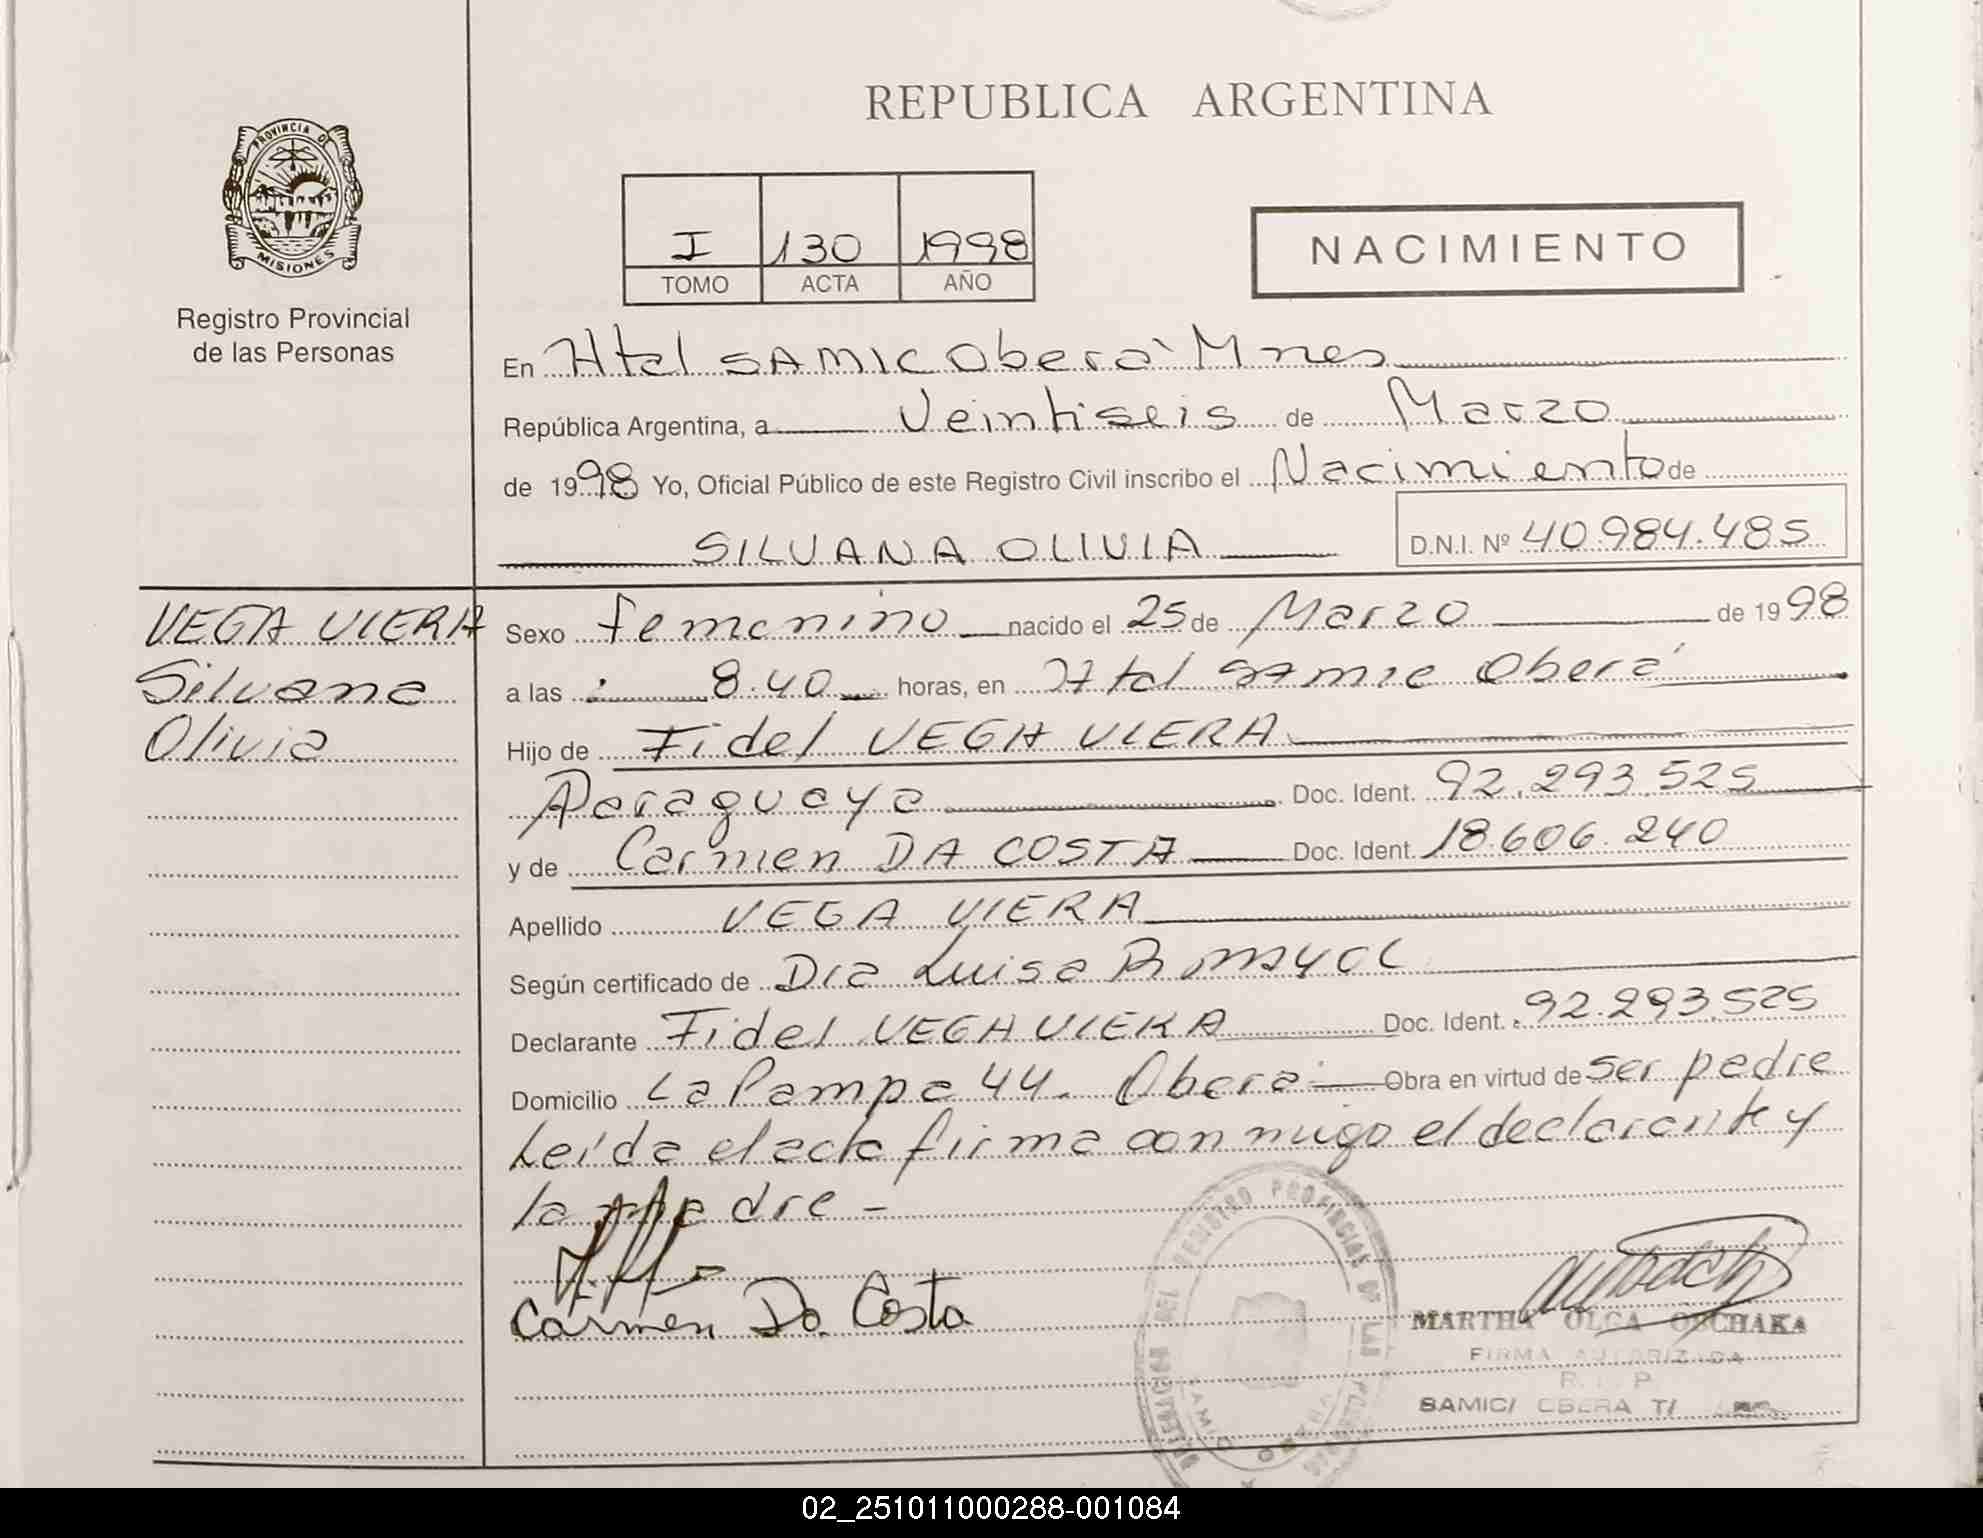 REPUBLICA ARGENTINA
PROVINCIA DE
MISIONES
Registro Provincial
de las Personas
I 130 1998
TOMO ACTA AÑO
NACIMIENTO
En Htal SAMIC Oberá Mnes
República Argentina, a Veintiseis de Marzo
de 1998 Yo, Oficial Público de este Registro Civil inscribo el Nacimiento de
SILVANA OLIVIA D.N.I. Nº 40.984.485
VEGA VIERA
Silvana
Olivia
Sexo femenino nacido el 25 de Marzo de 1998
a las 8.40 horas, en Htal SAMIC Oberá
Hijo de Fidel VEGA VIERA
Paraguaya Doc. Ident. 92.293.525
y de Carmen DA COSTA Doc. Ident. 18.606.240
Apellido VEGA VIERA
Según certificado de Dra Luisa
Declarante Fidel VEGA VIERA Doc. Ident. 92.293.525
Domicilio La Pampa 44. Oberá Obra en virtud de ser padre
Leída el acta firma conmigo el declarante y
la madre -
Carmen Da. Costa
MARTHA OLGA OBCHAKA
FIRMA AUTORIZADA
R. P
SAMIC/ OBERA T/
REGISTRO PROVINCIAL DE LAS
SAMIC OBERA
02_251011000288-001084